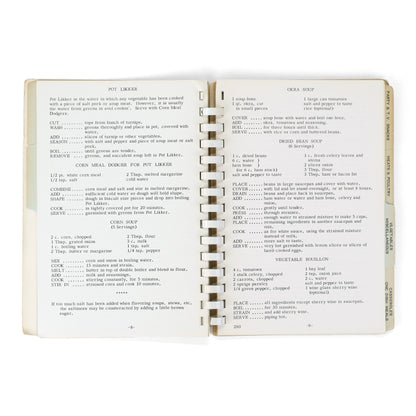 POT LIKKER
Pot Likker is the water in which any vegetable has been cooked
with a piece of salt pork or soup meat. However, it is usually
the water from greens in soul cookin'. Serve with Corn Meal
Dodgers.
CUT ..... tops from bunch of turnips.
WASH ..... greens thoroughly and place in pot, covered with
water.
ADD ..... slices of turnip or other vegetables.
SEASON ..... with salt and pepper and piece of pork or soup
meat.
BOIL ..... until greens are tender.
REMOVE ..... greens, and succulent soup left is Pot Likker.
CORN MEAL DODGER FOR POT LIKKER
1/2 pt. white corn meal
1/2 tsp. salt
2 Tbsp. melted margarine
cold water
COMBINE ..... corn meal and salt and stir in melted margarine.
ADD ..... sufficient cold water so dough will hold shape.
SHAPE ..... dough in biscuit size pieces and drop into boiling
Pot Likker.
COOK ..... in tightly covered pot for 20 minutes.
SERVE ..... garnished with greens from Pot Likker.
CORN SOUP
(5 Servings)
2 c. corn, chopped
1 Tbsp. grated onion
2 c. boiling water
2 Tbsp. butter or margarine
2 Tbsp. flour
3 c. milk
1 tsp. salt
1/4 tsp. pepper
MIX ..... corn and onion in boiling water.
COOK ..... 15 minutes and strain.
MELT ..... butter in top of double boiler and blend in flour.
ADD ..... milk and seasonings.
COOK ..... stirring constantly, for 5 minutes.
STIR IN ..... strained corn and cook 10 minutes.
*****
If too much salt has been added when flavoring soups, stews, etc.,
the saltiness may be counteracted by adding a little brown
sugar.
-8-
OKRA SOUP
1 soup bone
1 pt. okra, cut
in small pieces
1 large can tomatoes
salt and pepper to taste
rice (optional)
COVER ..... soup bone with water and boil one hour.
ADD ..... okra, tomatoes and seasoning.
BOIL ..... for three hours until thick.
SERVE ..... with rice or corn and buttered beans.
DRIED BEAN SOUP
(6 Servings)
1 c. dried beans
6 c. water
1 ham bone
salt and pepper to taste
1 c. fresh celery leaves and
stems
2 slices onion
3 Tbsp. flour
3 Tbsp. ham or bacon fat
PLACE ..... beans in large saucepan and cover with water.
COVER ..... with lid and let stand overnight, or at least 8 hours.
DRAIN ..... beans, and place in soup pot.
ADD ..... ham water or water and ham bone, celery and
onion.
COOK ..... gently until tender.
PRESS ..... through strainer.
ADD ..... enough water to strained mixture to make 5 cups.
PLACE ..... remaining ingredients in another saucepan and
COOK ..... as for white sauce, using the strained mixture
instead of milk.
ADD ..... more salt to taste.
SERVE ..... very hot garnished with lemon slices or sliced
hard-cooked eggs.
VEGETABLE BOUILLON
6 c. tomatoes
3 stalk celery, chopped
2 carrots, chopped
2 sprigs parsley
1/4 green pepper, chopped
1 bay leaf
2 tsp. onion juice
2 c. water
salt and pepper to taste
1 wine glass sherry wine
(optional)
PLACE ..... all ingredients except sherry wine in saucepan.
BOIL ..... for 30 minutes.
STRAIN ..... and add sherry wine.
SERVE ..... piping hot.
280
-9-